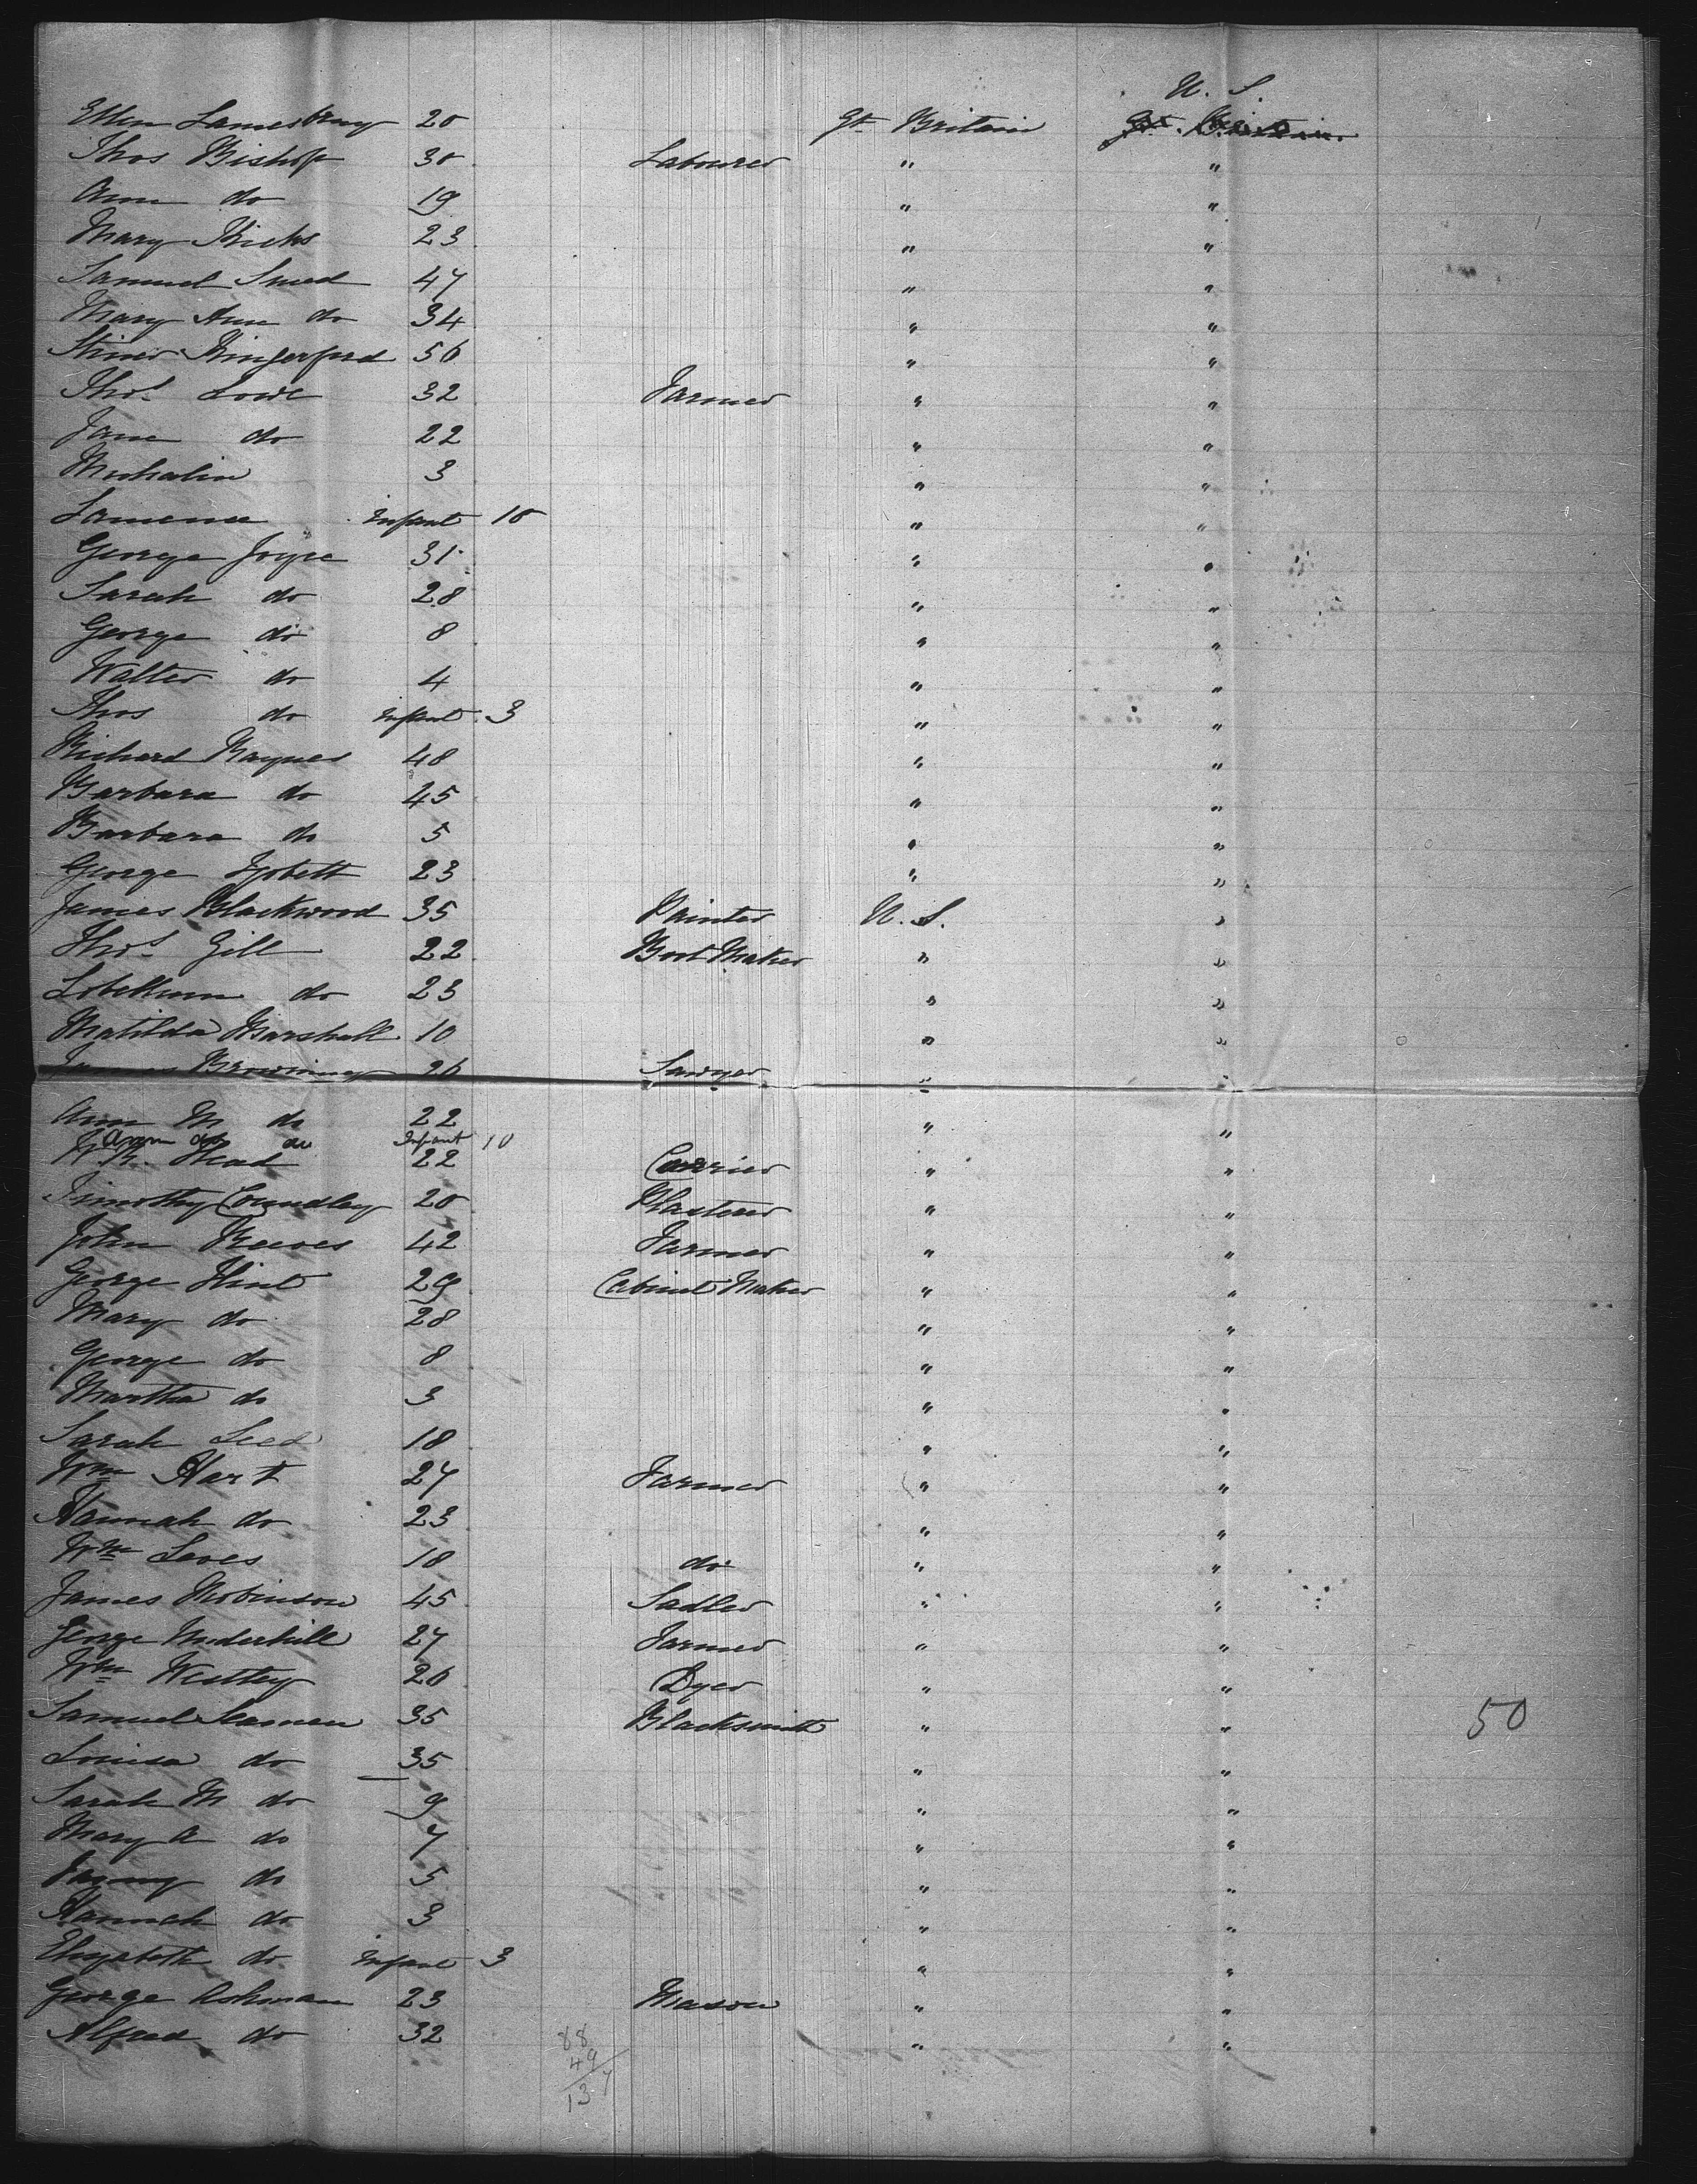 U. S.
Ellen 20 Gt Britain Gt. Britain.
Thos Bishop 30 Labourer " "
Ann do 19 " "
Mary Hicks 23 " "
Samuel 47 " "
Mary Ann do 34 " "
56 " "
Thos. Lowe 32 Farmer " "
Jane do 22 " "
3 " "
infant 10 " "
George Joyce 31 " "
Sarah do 28 " "
George do 8 " "
Walter do 4 " "
Thos do infant 3 " "
Richard Raynes 48 " "
Barbara do 45 " "
Barbara do 5 " "
George 23 " "
James Blackwood 35 Painter U. S. "
Thos. Gill 22 Boot Maker " "
do 23 " "
Matilda Marshall 10 " "
James Browning 26 Sawyer " "
Ann M do 22 " "
Ann do Infant 10
Head 22 Currier " "
Timothy 20 Plasterer " "
John Reeves 42 Farmer " "
George Hint 29 Cabinet Maker " "
Mary do 28 " "
George do 8 " "
Martha do 3 " "
Sarah 18 " "
Wm Hart 27 Farmer " "
Hannah do 23 " "
Wm 18 do " "
James Robinson 45 Sadler " "
George Underhill 27 Farmer " "
Wm 26 Dyer " "
Samuel Seamen 35 Blacksmith " " 50
Louisa do 35 " "
Sarah M do 9 " "
Mary A do 7 " "
Fanny do 5 " "
Hannah do 3 " "
Elizabeth do infant 3 " "
George Ashman 23 Mason " "
Alfred do 32 " "
88
49
137